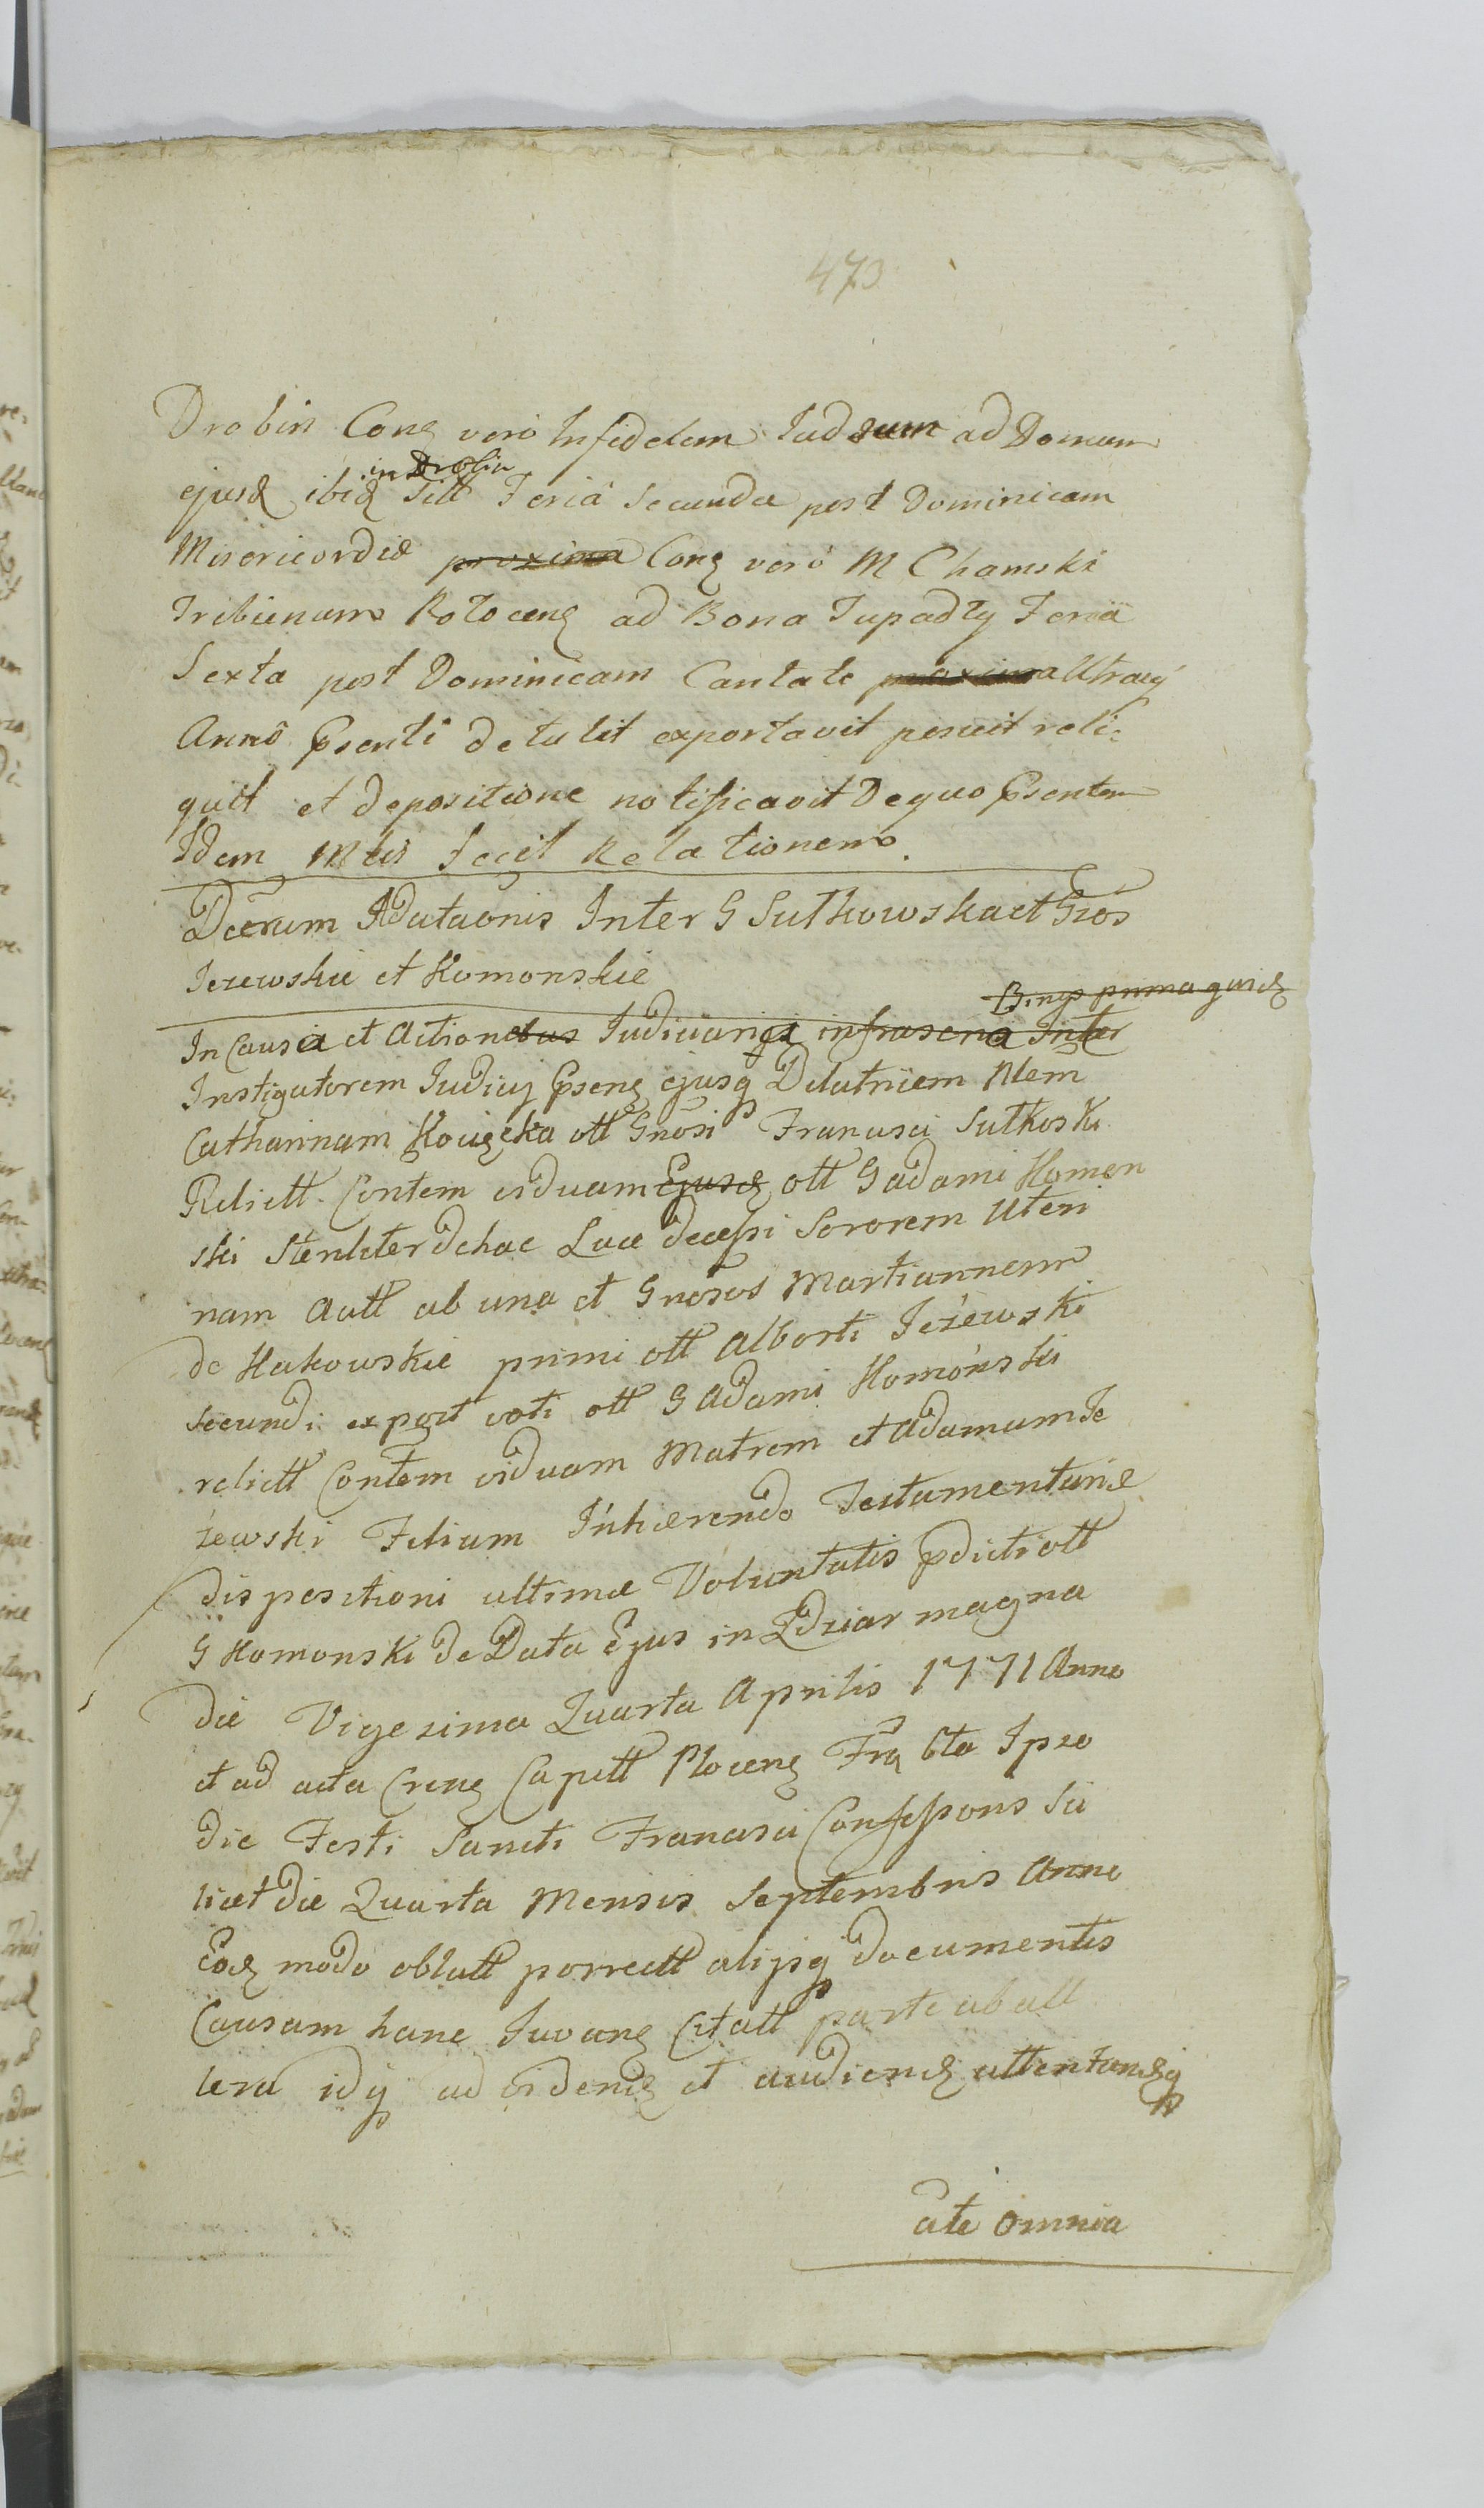 473
Drobin Conę vero Infidelem Judaeum ad Domum
in Drobin
ejusd ibid Sitt Feria Secunda post Dominicam
Misericordiæ proxima Conę vero M Chamski
Tribunum Plocenę ad Bona Tupadły Feria
Sexta post Dominicam Cantate proxima Utraq
Anno Psenti detulit exportavit posuit reli-
quit et depositione notificavit De quo Psentem
Idem Mtis fecit Relationem
Dcerum Adutaonis Inter G Sutkowska et Gros
Jezewskie et Komonskie
Binys prima quid
In Causa et Actionebus Judiciaria infrascrip Inter
Instigatorem Judicij Psenę ejusq Delatricem Nlem
Catharinam ott Gnosi Francisci Sutkoski
Relictt Contem viduam Ejusd ott G Adami Komon
ski Sterileter de hac Luce decessi Sororem Uteri
nam Actt ab una et Gnosos Martiannem
de Kukowskie primi ott Alberti Jeżewski
secundi expost voti ott G Adami Komónski
relictt Contem viduam Matrem et Adamum Je
żewski Filium Inhærendo Testamentariæ
dispositioni ultimæ Voluntatis pdicti ott
G Komonski de Data Ejus in Zdziar magna
die Vigesima Quarta Aprilis 1771 Anno
et ad acta Crenę Capitt Plocenę Fra 6ta Ipso
die Festi Sancti Francisci Confessoris Sci
licet die Quarta Mensis Septembris Anno
Eod modo oblatt porrectt alijsq documentis
Causam hanc Juvanę Citatt parte ab alt
tera idq ad vidend et audiend attentandq
ate omnia